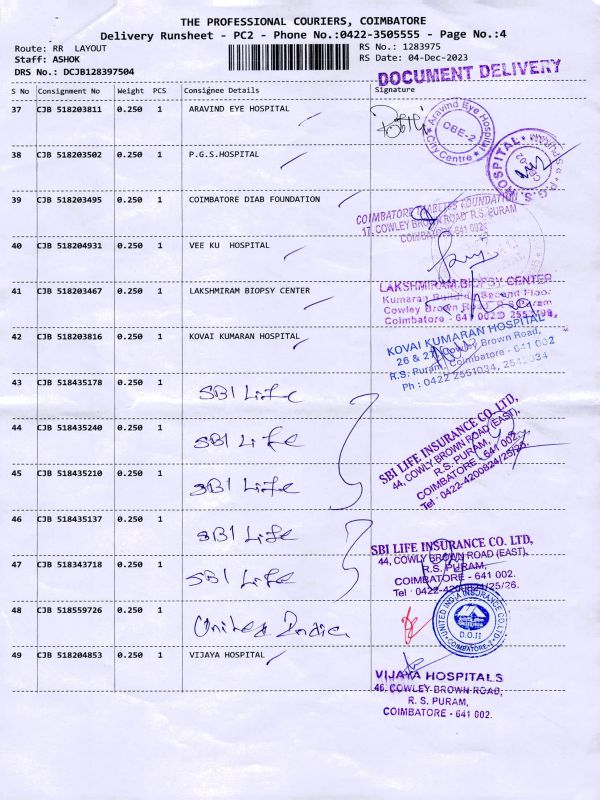 THE PROFESSIONAL COURIERS, COIMBATORE
Delivery Runsheet - PC2 - Phone No.:0422-3505555 - Page No.:4
Route: RR LAYOUT
Staff: ASHOK
DRS No.: DCJB128397504
RS No.: 1283975
RS Date: 04-Dec-2023
DOCUMENT DELIVERY
S No Consignment No Weight PCS Consignee Details Signature
37 CJB 518203811 0.250 1 ARAVIND EYE HOSPITAL
Aravind Eye Hospital
CBE-2
City Centre
38 CJB 518203502 0.250 1 P.G.S.HOSPITAL
P.G.S. HOSPITAL
39 CJB 518203495 0.250 1 COIMBATORE DIAB FOUNDATION
COIMBATORE DIABETES FOUNDATION
17, COWLEY BROWN ROAD R.S. PURAM
COIMBATORE - 641 002
40 CJB 518204931 0.250 1 VEE KU HOSPITAL
41 CJB 518203467 0.250 1 LAKSHMIRAM BIOPSY CENTER
LAKSHMIRAM BIOPSY CENTER
Kumaran Building Second Floor
Cowley Brown Road, R.S. Puram
Coimbatore - 641 002
42 CJB 518203816 0.250 1 KOVAI KUMARAN HOSPITAL
KOVAI KUMARAN HOSPITAL
26 & 27, Cowley Brown Road,
R.S. Puram, Coimbatore - 641 002
Ph : 0422 2551034, 2542034
43 CJB 518435178 0.250 1 SBI Life
44 CJB 518435240 0.250 1 SBI Life
45 CJB 518435210 0.250 1 SBI Life
SBI LIFE INSURANCE CO. LTD,
44, COWLY BROWN ROAD (EAST),
R.S. PURAM,
COIMBATORE - 641 002.
Tel - 0422-4200824/25/26.
46 CJB 518435137 0.250 1 SBI Life
47 CJB 518343718 0.250 1 SBI Life
SBI LIFE INSURANCE CO. LTD,
44, COWLY BROWN ROAD (EAST),
R.S. PURAM,
COIMBATORE - 641 002.
Tel - 0422-4200824/25/26.
48 CJB 518559726 0.250 1 United India
UNITED INDIA INSURANCE CO. LTD.
D.O.II
COIMBATORE
49 CJB 518204853 0.250 1 VIJAYA HOSPITAL
VIJAYA HOSPITALS
46, COWLEY BROWN ROAD,
R. S. PURAM,
COIMBATORE - 641 002.